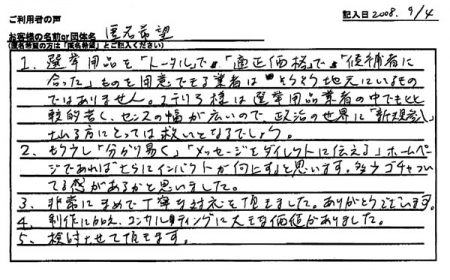 ご利用者の声
記入日 2008. 9/4
お客様の名前or団体名 匿名希望
(匿名希望の方は「匿名希望」とご記入ください)
1. 選挙用品を「トータルで」「適正価格で」「候補者に
合った」ものを用意できる業者はそうそう地元にいるもの
ではありません。 様は選挙用品業者の中でも比
較的若く、センスの幅が広いので、政治の世界に「新規参入」
される方にとっては救いとなるでしょう。
2. もう少し「分かり易く」「メッセージをダイレクトに伝える」ホームペー
ジであればさらにインパクトが向上すると思います。多少ゴチャつい
てる感があるかと思いました。
3. 非常にまめで丁寧な対応を頂きました。ありがとうございます。
4. 制作に加え、コンサルティングに大きな価値がありました。
5. 検討させて頂きます。